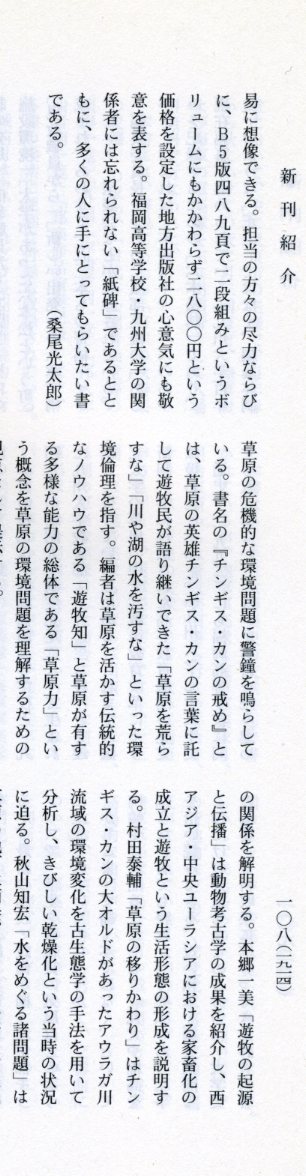 新刊紹介
一〇八（一九四）
易に想像できる。担当の方々の尽力ならび
に、Ｂ５版四八九頁で二段組みというボ
リュームにもかかわらず二八〇〇円という
価格を設定した地方出版社の心意気にも敬
意を表する。福岡高等学校・九州大学の関
係者には忘れられない「紙碑」であるとと
もに、多くの人に手にとってもらいたい書
である。
（桑尾光太郎）
草原の危機的な環境問題に警鐘を鳴らして
いる。書名の『チンギス・カンの戒め』と
は、草原の英雄チンギス・カンの言葉に託
して遊牧民が語り継いできた「草原を荒ら
すな」「川や湖の水を汚すな」といった環
境倫理を指す。編者は草原を活かす伝統的
なノウハウである「遊牧知」と草原が有す
る多様な能力の総体である「草原力」とい
う概念を草原の環境問題を理解するための
の関係を解明する。本郷一美「遊牧の起源
と伝播」は動物考古学の成果を紹介し、西
アジア・中央ユーラシアにおける家畜化の
成立と遊牧という生活形態の形成を説明す
る。村田泰輔「草原の移りかわり」はチン
ギス・カンの大オルドがあったアウラガ川
流域の環境変化を古生態学の手法を用いて
分析し、きびしい乾燥化という当時の状況
に迫る。秋山知宏「水をめぐる諸問題」は